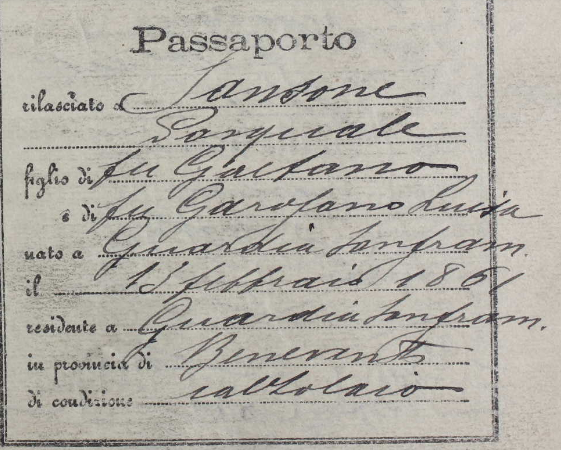 Passaporto
rilasciato a Sansone
Pasquale
figlio di fu Gaetano
e di fu Garofano Luisa
nato a Guardia Sanfram.
il 13 febbraio 1861
residente a Guardia Sanfram.
in provincia di Benevento
di condizione calzolaio